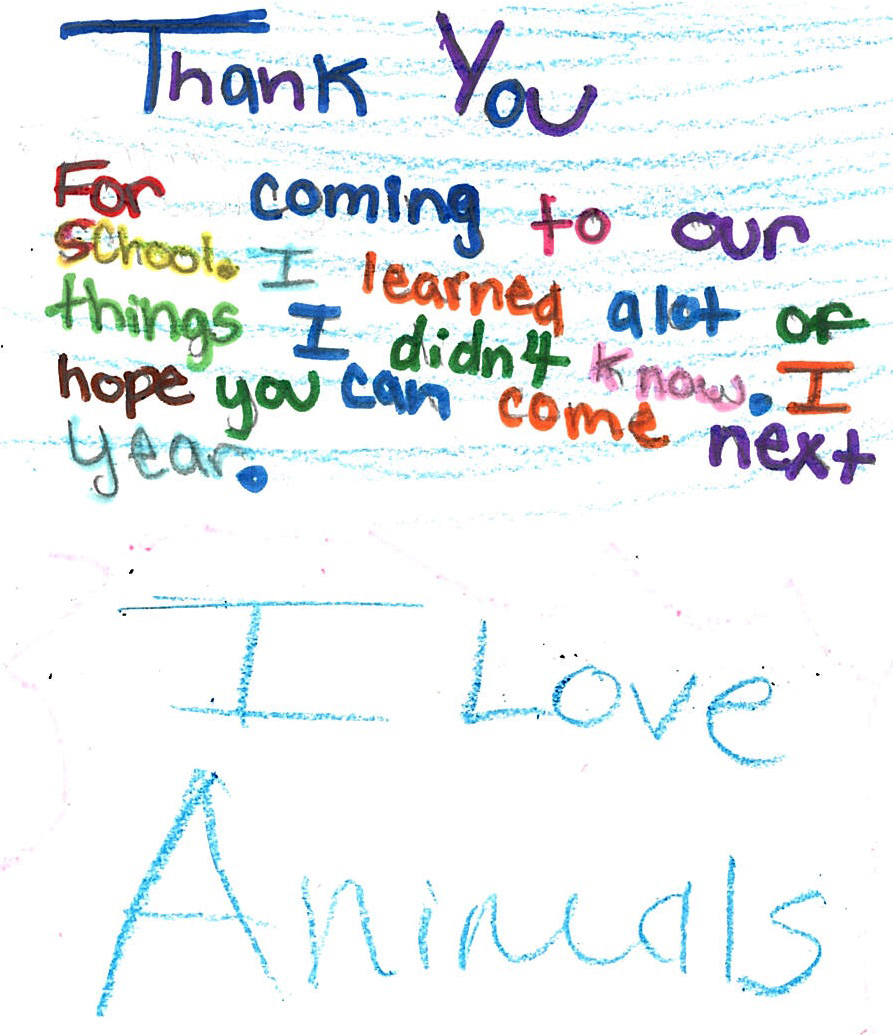 Thank You
For coming to our
school. I learned alot of
things I didn't know. I
hope you can come next
year.
I Love
Animals